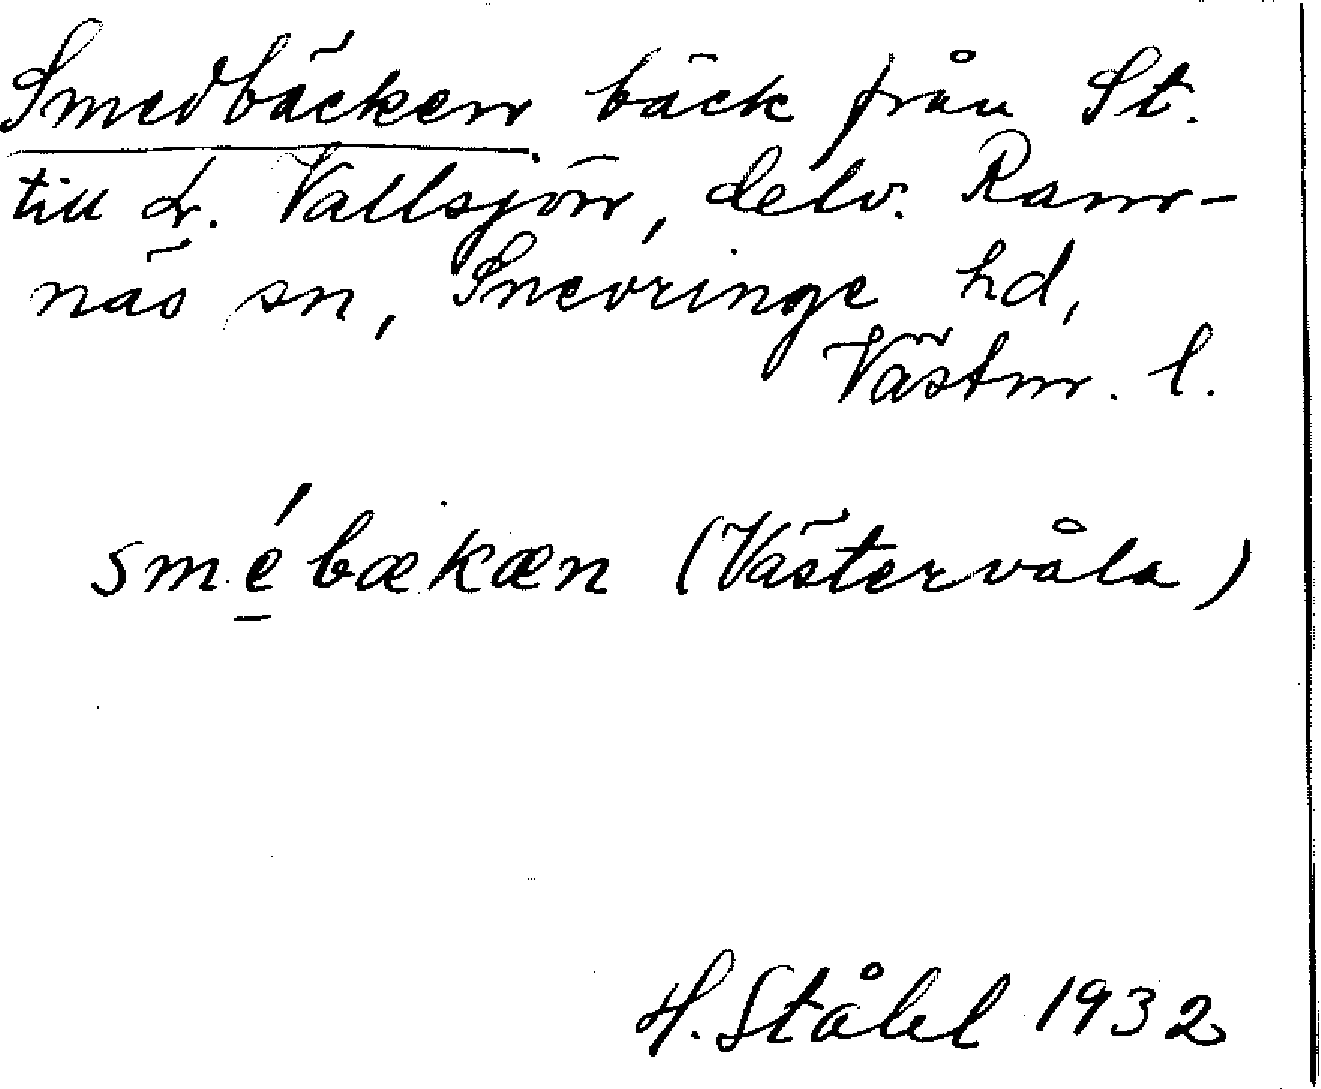 Smedbäcken, bäck från St.
till L. Vallsjön, delv. Ram-
näs sn, Snevringe hd,
Västm. l.
smé̱bækæn (Västervåla)
H. Ståhl 1932